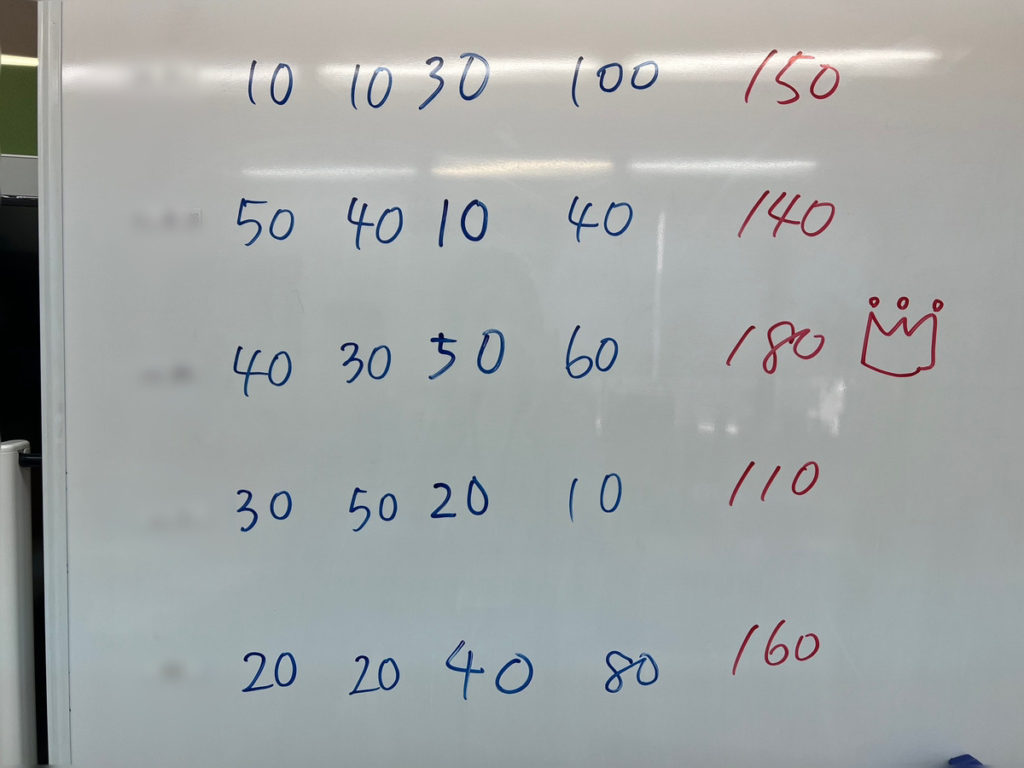 10 10 30 100 150
50 40 10 40 140
40 30 50 60 180
30 50 20 10 110
20 20 40 80 160